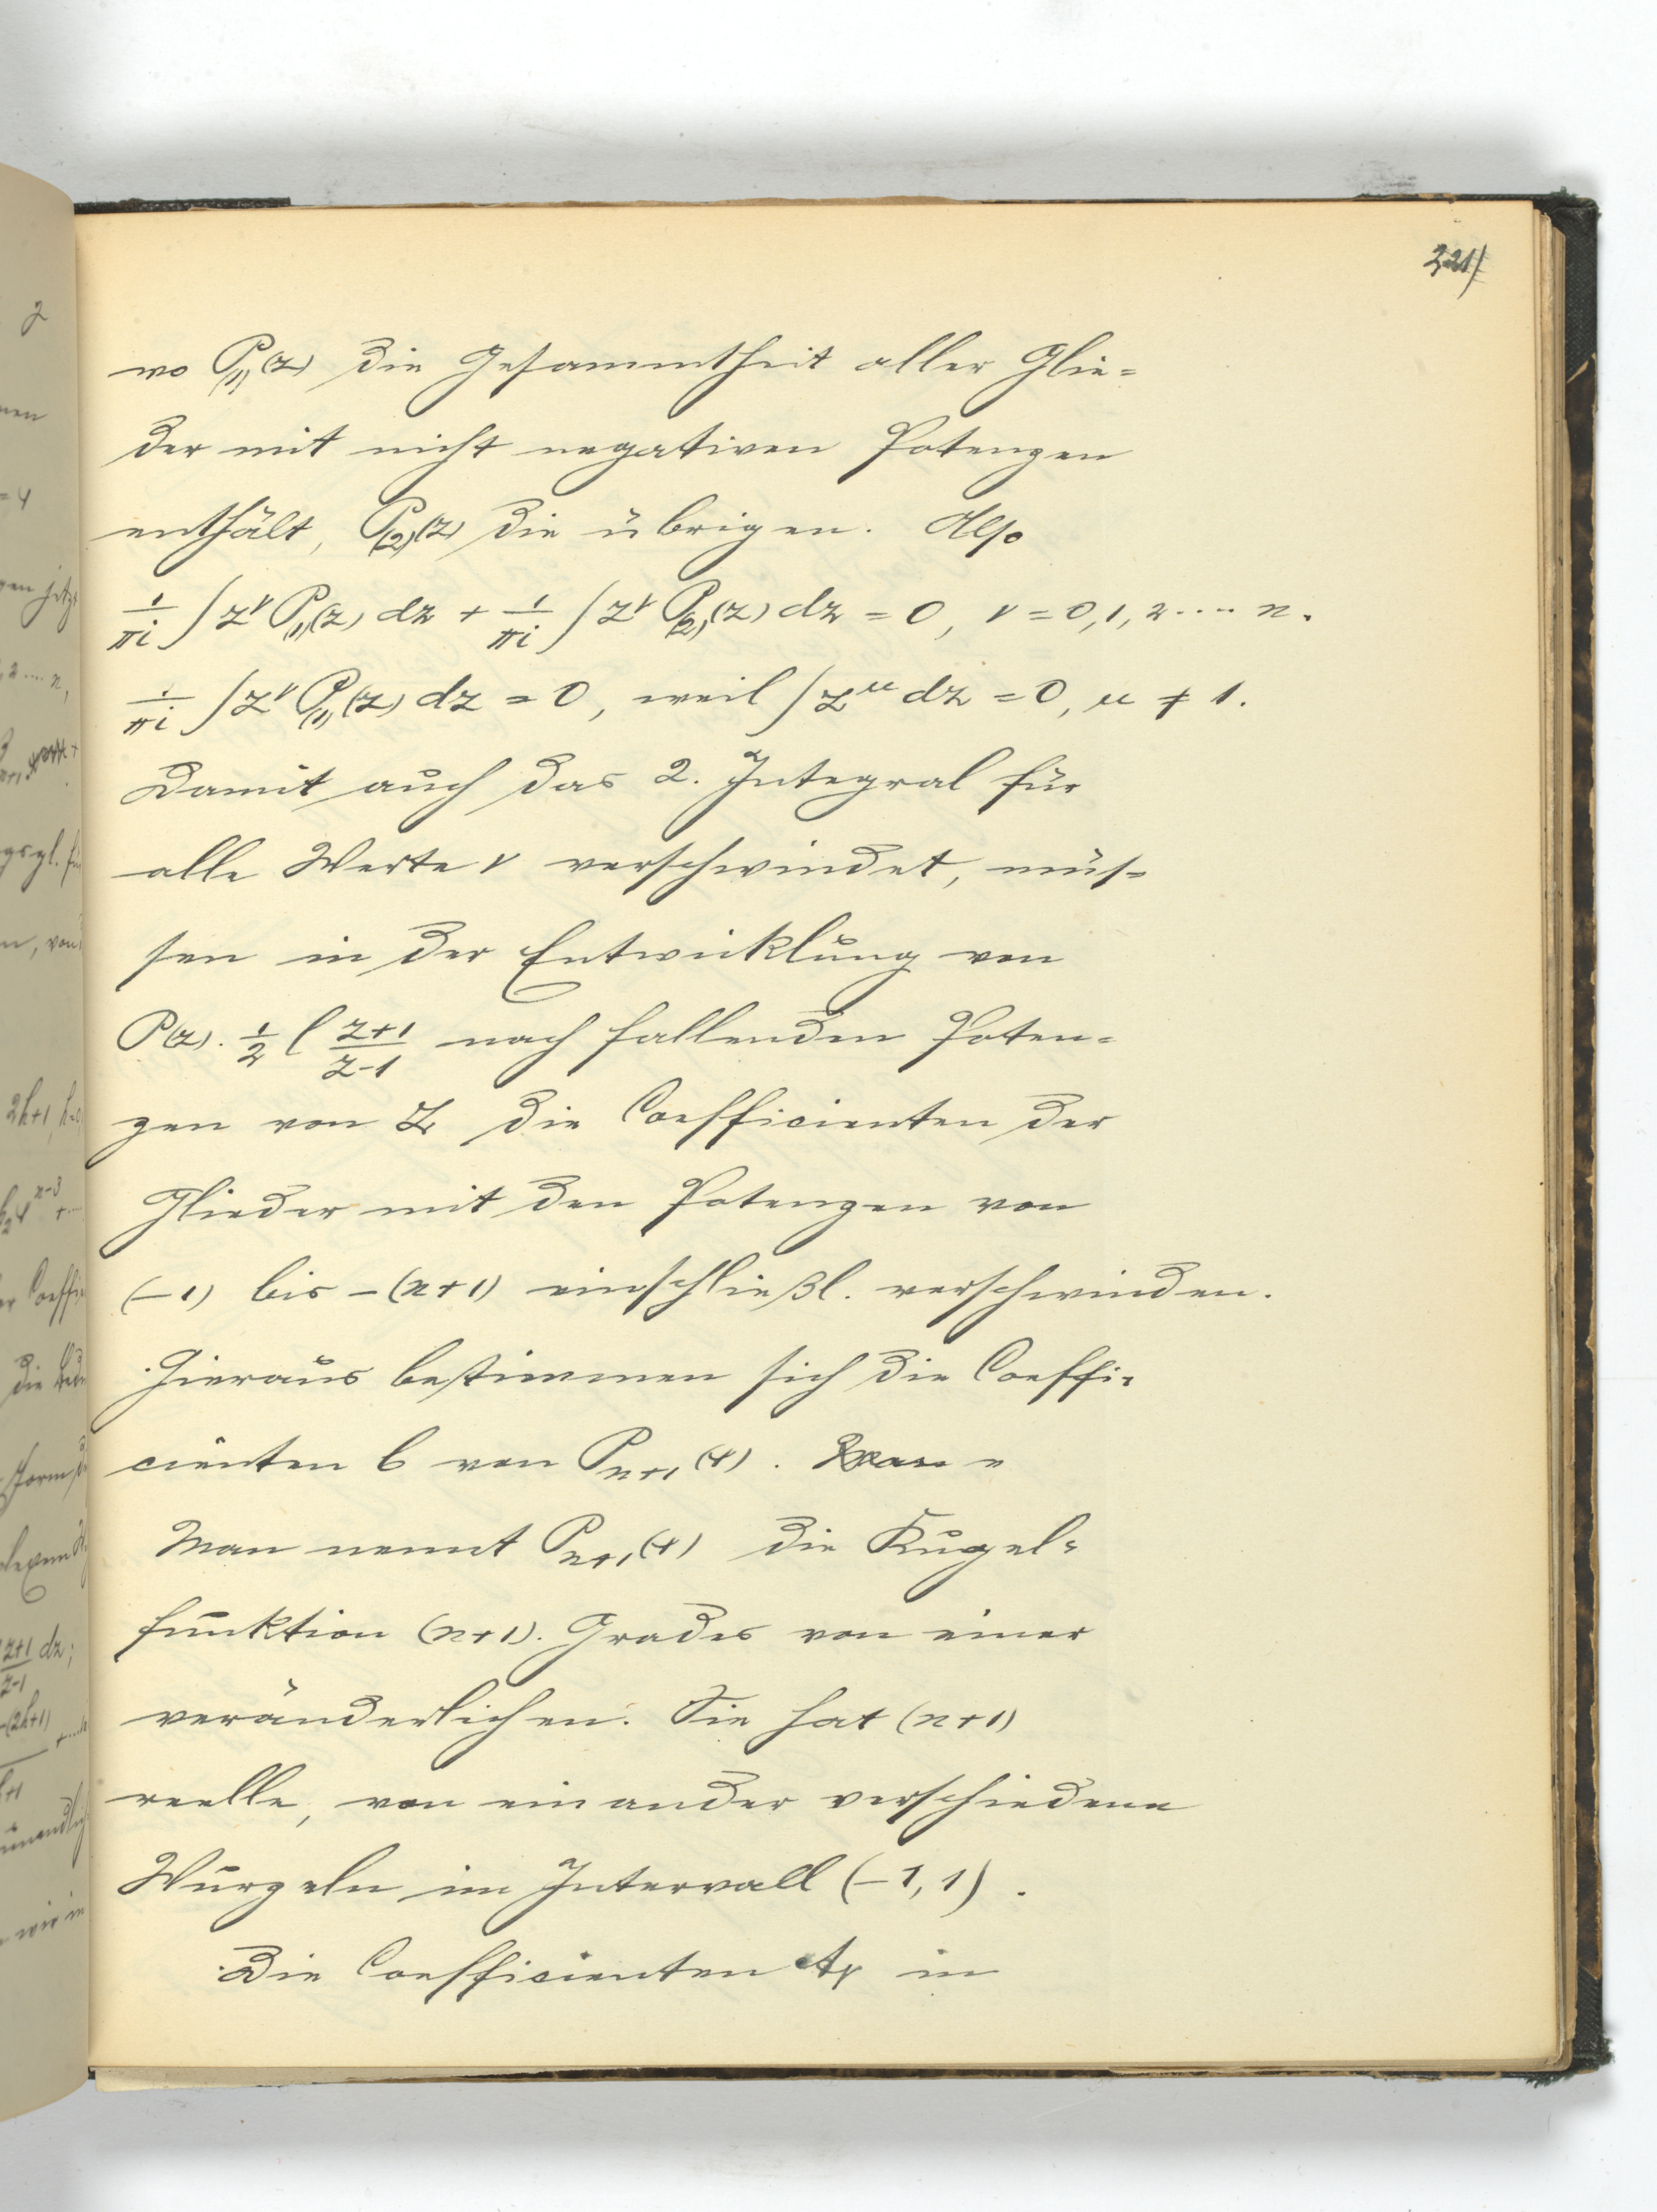 321)
wo P₍₁₎(z) die Gesammtheit aller Glie=
der mit nicht negativen Potenzen
enthält, P₍₂₎(z) die übrigen. Also
1/πi ∫ z^ν P₍₁₎(z) dz + 1/πi ∫ z^ν P₍₂₎(z) dz = 0, ν = 0,1,2 ···· n.
1/πi ∫ z^ν P₍₁₎(z) dz = 0, weil ∫ z^μ dz = 0, μ ≠ 1.
Damit auch das 2. Integral für
alle Werte ν verschwindet, müs=
sen in der Entwicklung von
P(z). 1/2 l (z+1)/(z-1) nach fallenden Poten=
zen von z die Coefficienten der
Glieder mit den Potenzen von
(-1) bis -(n+1) einschließl. verschwinden.
Hieraus bestimmen sich die Coeffi=
cienten b von P_{n+1}(x).
Man nennt P_{n+1}(x) die Kugel=
funktion (n+1). Grades von einer
veränderlichen. Sie hat (n+1)
reelle, von einander verschiedene
Wurzeln im Intervall (-1, 1).
Die Coefficienten A_ν in